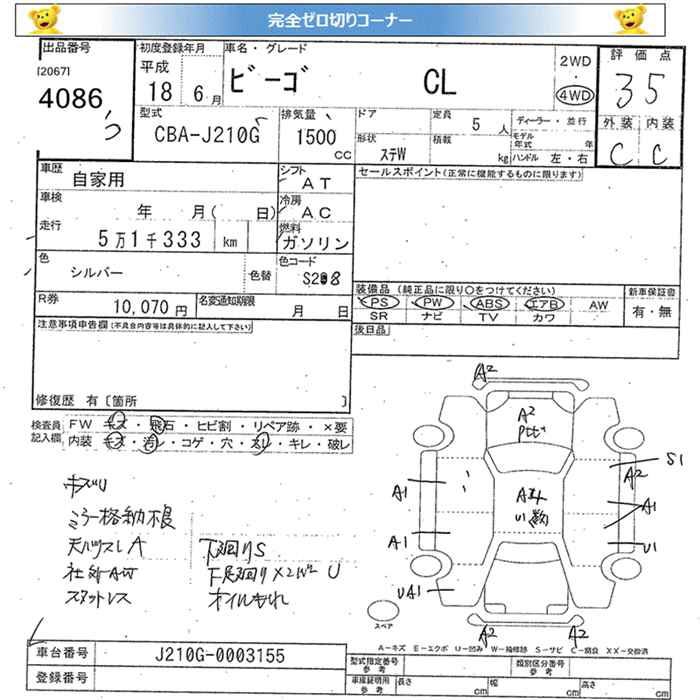 完全ゼロ切りコーナー
出品番号
[2067]
4086
初度登録年月
平成
18 6月
車名・グレード
ビーゴ CL
2WD
・
4WD
評価点
35
外装 内装
C C
型式
CBA-J210G
排気量
1500
cc
ドア
形状
ステW
定員
5人
積載
kg
ディーラー・並行
モデル年式 年
ハンドル 左・右
車歴
自家用
シフト
AT
車検
年 月( 日)
冷房
AC
走行
5万1千333 km
燃料
ガソリン
色
シルバー
色替
色コード
S28
R券
10,070円
名変通知期限
月 日
セールスポイント(正常に機能するものに限ります)
装備品 (純正品に限り○をつけてください)
PS PW ABS エアB AW
SR ナビ TV カワ
新車保証書
有・無
後日品
注意事項申告欄(不具合内容等は具体的に記入して下さい)
修復歴 有〔箇所 〕
検査員記入欄
FW キズ・飛石・ヒビ割・リペア跡・×要
内装 キズ・汚レ・コゲ・穴・スレ・キレ・破レ
キズリ
ミラー格納不良
天バリスレA
社外AW
スタットレス
下廻りS
オイルもれ
A2
A2
A1
A1
UA1
S1
A2
A1
U1
A2
A2
スペア
A-キズ E-エクボ U-凹み W-補修跡 S-サビ C-腐食 XX-交換済
車台番号
J210G-0003155
登録番号
型式指定番号
参考
類別区分番号
参考
車庫証明用
参考
長さ cm
幅 cm
高さ cm